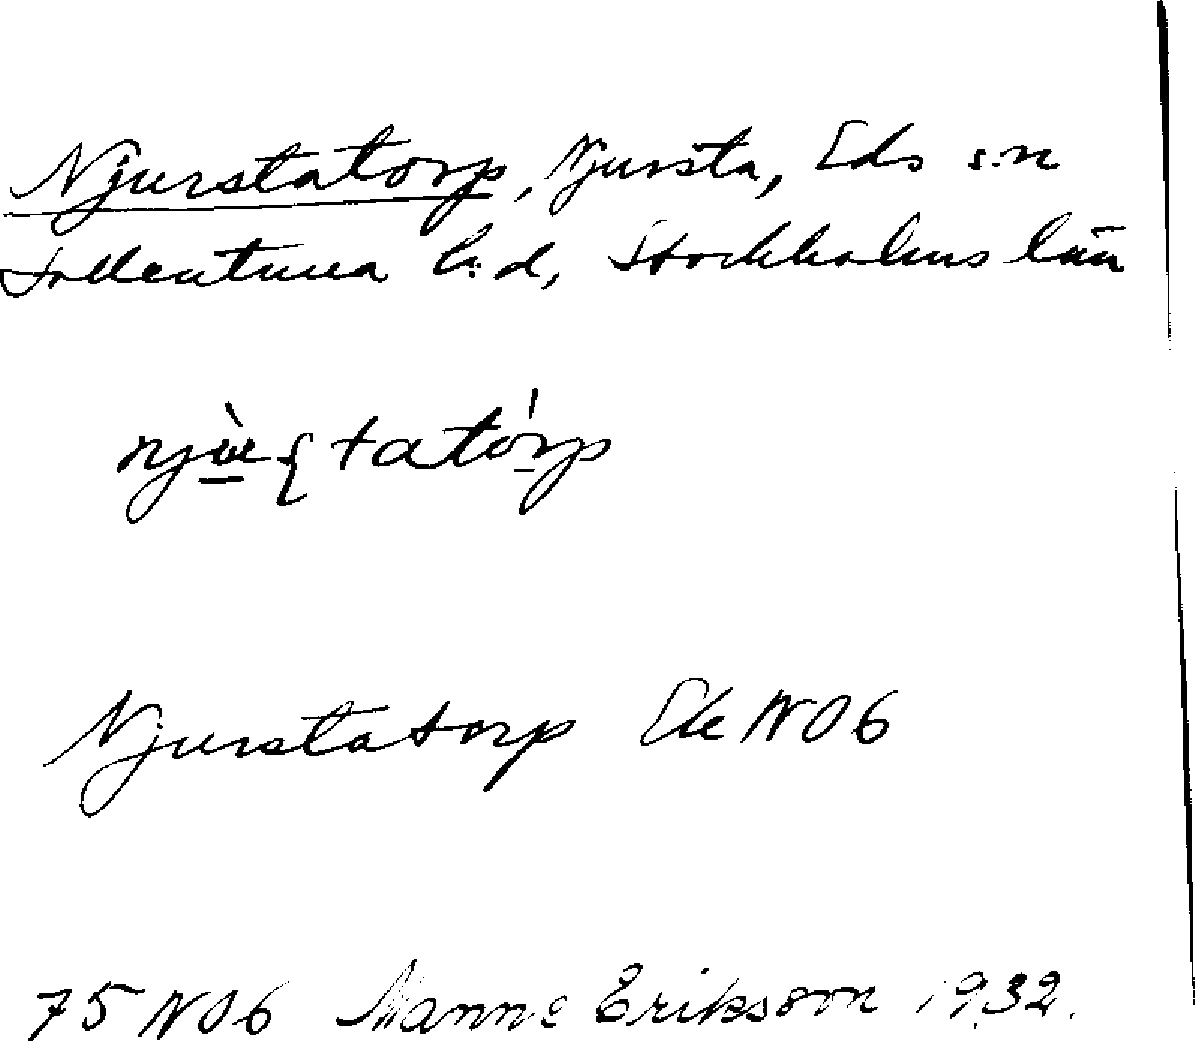 Njurstatorp, Njursta, Eds s:n
Sollentuna h:d, Stockholms län
Njurstatorp Ek NO6
75 NO6 Manne Eriksson 1932.